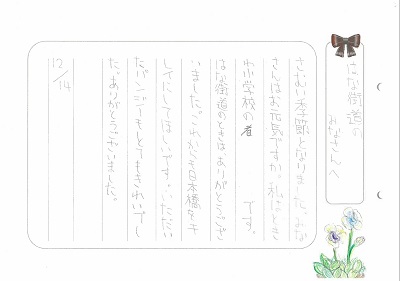 はな街道の
みなさんへ
さむい季節となりました。みな
さんはお元気ですか。私はとき
わ小学校の　　　です。
はな街道のときは、ありがとうござ
いました。これからも日本橋をキ
レイにしてほしいです。いただい
たパンジーもとてもきれいでし
た。ありがとうございました。
12/14